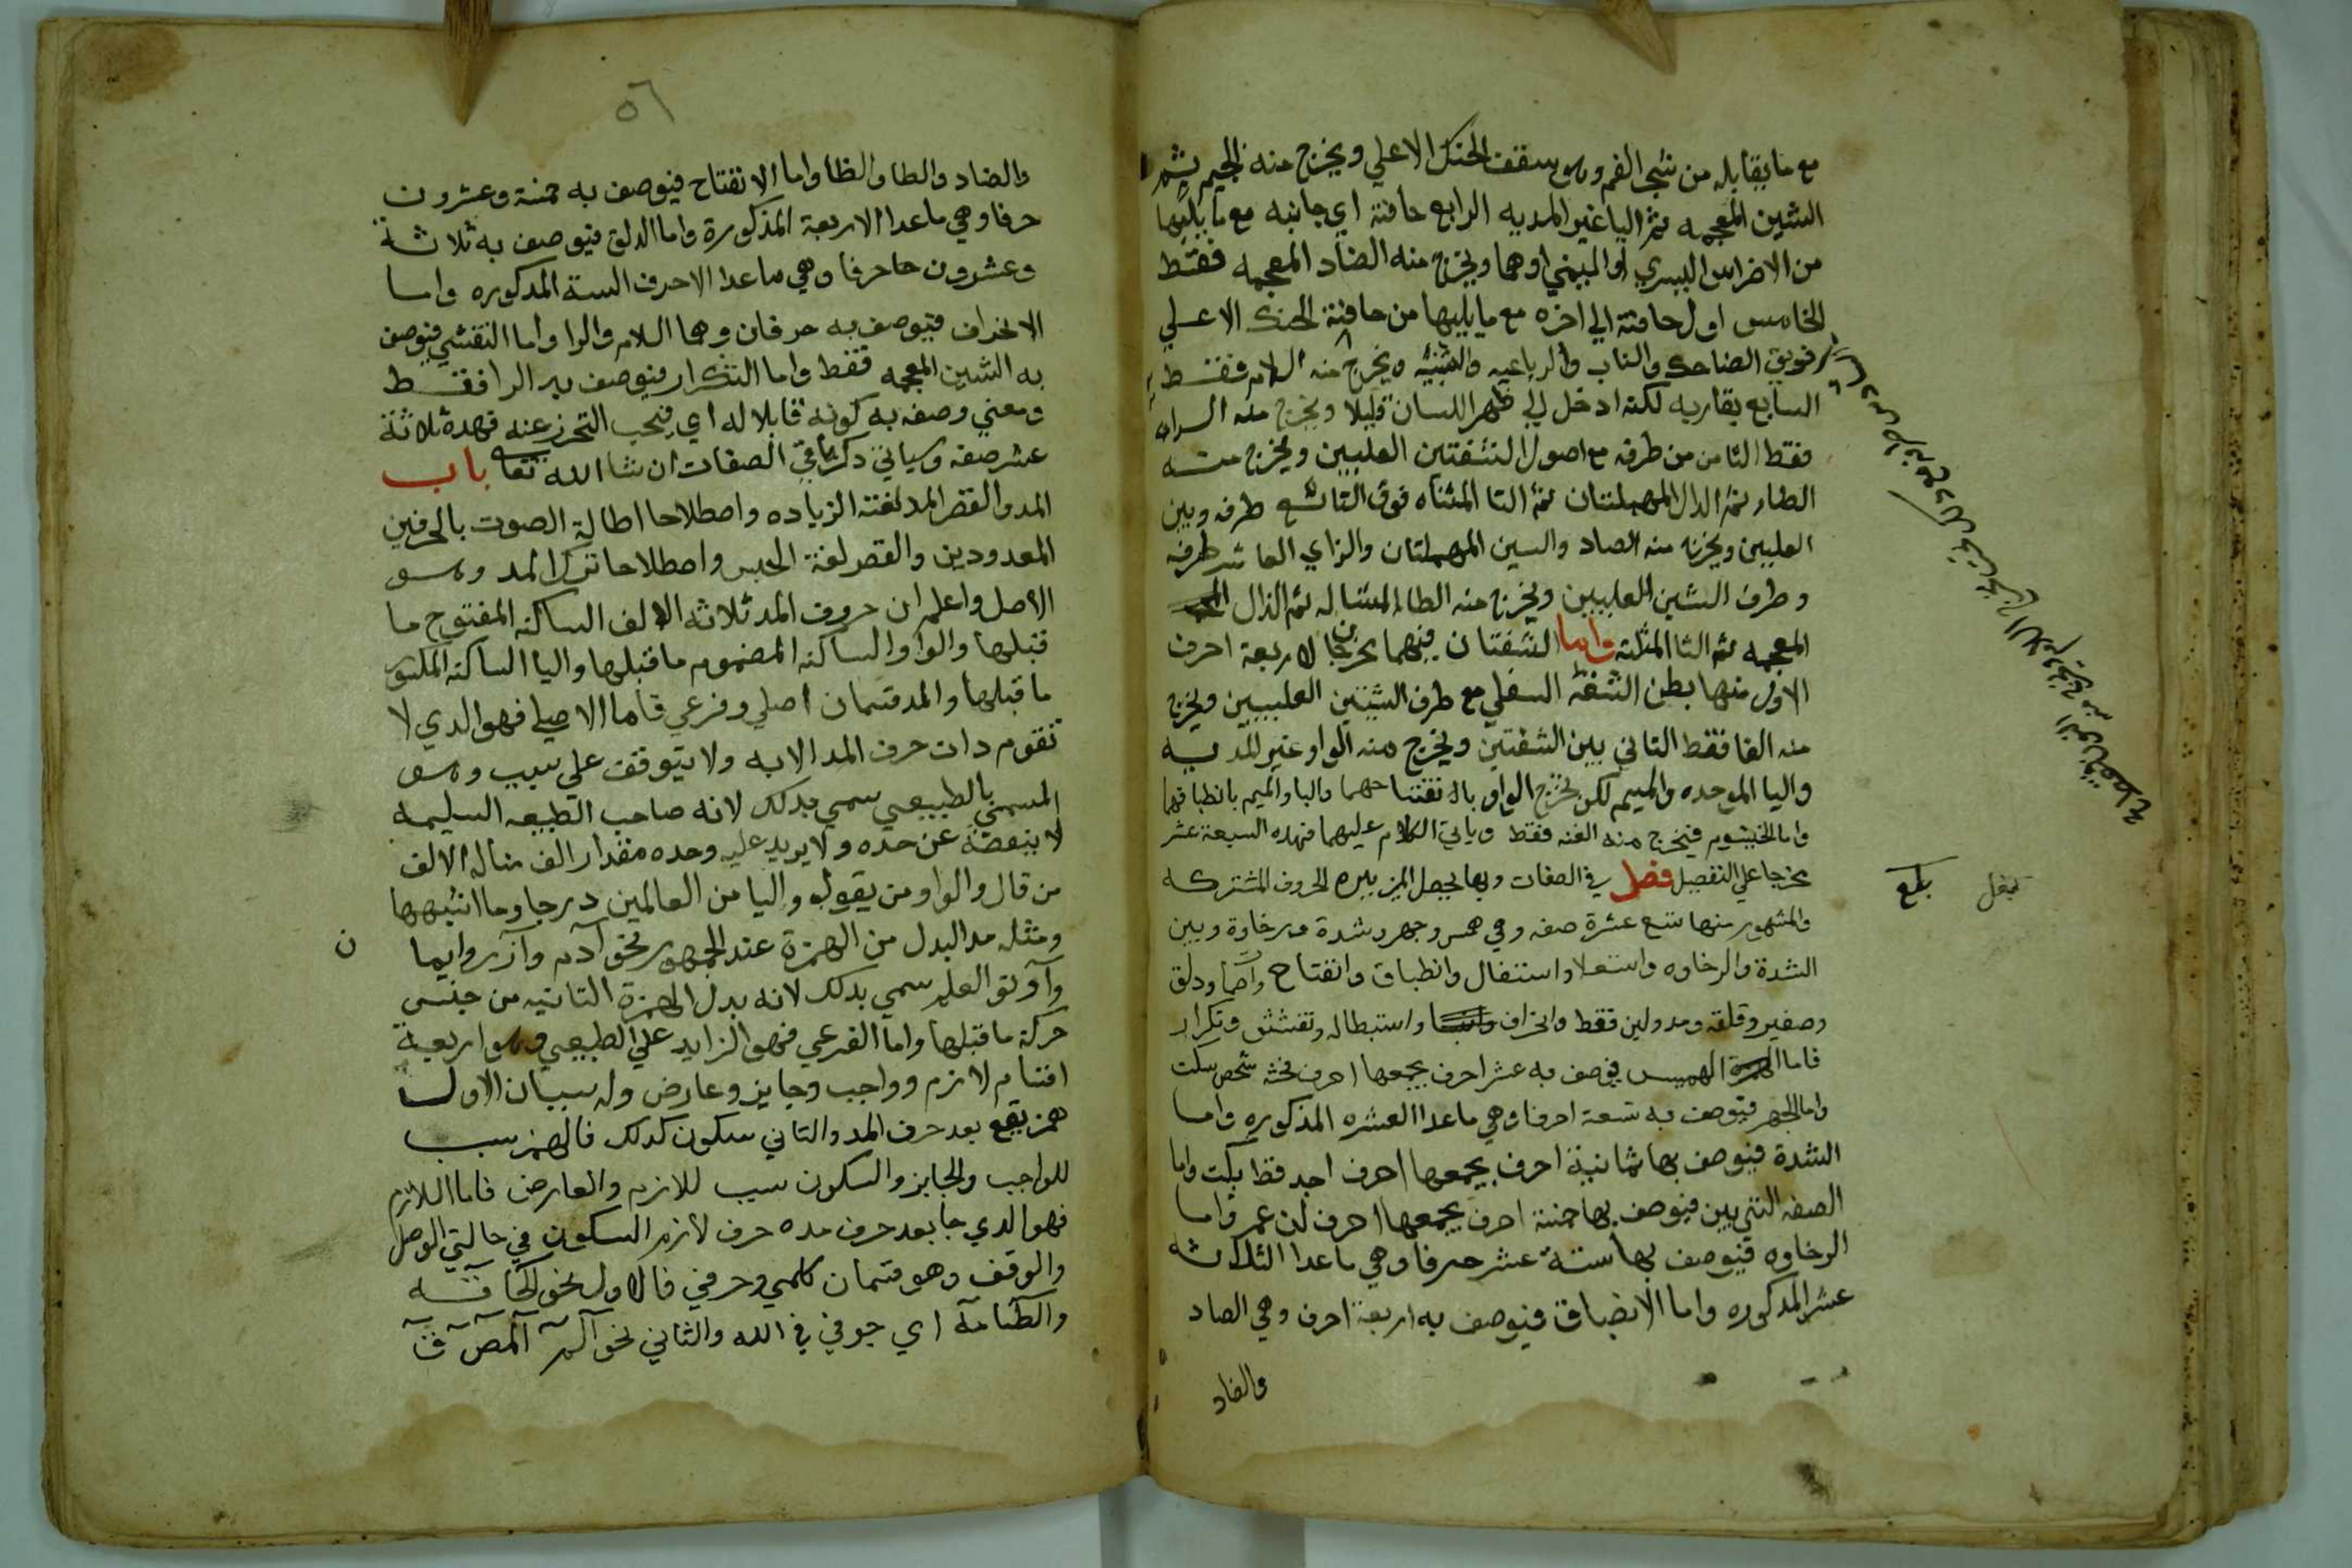 مع ما يقابله من شجر الفم وهو سقف الحنك الاعلي ويخرج منه الجيم ثم
الشين المعجمه ثم اليا غير المديه الرابع حافتة اي جانبه مع ما يليها
من الاضراس اليسري او اليمني او هما ويخرج منه الضاد المعجمه فقط
الخامس اول حافتة الي اخره مع ما يليها من حافتة الحنك الاعلي
فويق الضاحك والناب والرباعيه والثنيه ويخرج منه اللام فقط
السابع يقاربه لكنه ادخل الي ظهر اللسان قليلا ويخرج منه الراء
فقط الثامن من طرفه مع اصول الثنيتين العليين ويخرج منه
الطا ثم الدال المهملتان ثم التا المثناه فوق التاسع طرفه وبين
العليين ويخرج منه الصاد والسين المهملتان والزاي العاشر طرفه
وطرف الثنيتين العليين ويخرج منه الظا المشاله ثم الذال
المعجمه ثم الثا المثلثه واما الشفتان فيهما مخرجان لاربعة احرف
الاول منها بطن الشفة السفلي مع طرف الثنيتين العليين ويخرج
منه الفا فقط الثاني بين الشفتين ويخرج منه الواو غير المديه
والبا الموحده والميم لكن يخرج الواو بانفتاحهما والبا والميم بانطباقهما
واما الخيشوم فيخرج منه الغنه فقط وياتي الكلام عليهما فهده السبعة عشر
مخرجا علي التفصيل فصل في الصفات وبها يحصل الميز بيره للحروف المشتركه
والمشهور منها تسع عشرة صفه وهي همس وجهر وشدة ورخاوة وبين
الشدة والرخاوه واستعلا واستفال وانطباق وانفتاح واصما ودلق
وصفير وقلقه ومد ولين فقط وانحراف واستطاله وتفشي وتكرار
فاما الهمس فيوصف به عشر احرف يجمعها احرف فحثه شخص سكت
واما الجهر فيوصف به تسعة احرفا وهي ماعدا العشره المذكوره واما
الشدة فيوصف بها ثمانية احرف يجمعها احرف اجد قط بكت واما
الصفه التي بين فيوصف بها خمسة احرف يجمعها احرف لن عمر واما
الرخاوه فيوصف بها ستة عشر حرفا وهي ماعدا الثلاثه
عشر المذكوره واما الانطباق فيوصف به اربعة احرف وهي الصاد
والضاد
بلغ
٥٦
والضاد والطا والظا واما الانفتاح فيوصف به خمسة وعشرون
حرفا وهي ماعدا الاربعة المذكورة واما الدلق فيوصف به ثلاثة
وعشرون حا حرفا وهي ماعدا الاحرف الستة المدكوره واما
الانحراف فيوصف به حرفان وهما اللام والرا واما التفشي فيوصف
به الشين المعجمه فقط واما التكرار فيوصف به الرا فقط
ومعني وصفه به كونه قابلا له اي فيجب التحرز عنه فهده ثلاثة
عشر صفه وسياتي ذكر باقي الصفات ان شا الله تعا باب
المد والقصر المد لغته الزياده واصطلاحا اطالة الصوت بالحرفين
المعدودين والقصر لغة الحبس واصطلاحا ترك المد وهو
الاصل واعلم ان حروف المد ثلاثه الالف الساكنه المفتوح ما
قبلها والواو الساكنه المضموم ما قبلها واليا الساكنه المكسور
ما قبلها والمد قسمان اصلي وفرعي فاما الاصلي فهو الدي لا
تقوم دات حرف المد الا به ولا يتوقف علي سبب وهو
المسمي بالطبيعي سمي بدلك لانه صاحب الطبيعه السليمه
لا ينقصه عن حده ولا يزيد عليه وحده مقدار الف مثاله الالف
من قال والواو من يقول واليا من العالمين درجا وما اشبهها
ومثله مد البدل من الهمزة عند الجمهور نحو آدم وآزر وايما ن
وآوتو العلم سمي بدلك لانه بدل الهمزة الثانيه من جنس
حركة ما قبلها واما الفرعي فهو الزايد علي الطبيعي وهو اربعة
اقسام لازم وواجب وجايز وعارض وله سببان الاول
همز يقع بعد حرف المد والثاني سكون كدلك فالهمز سبب
للواجب والجايز والسكون سبب للازم والعارض فاما اللازم
فهو الدي جا بعد حرف مده حرف لازم السكون في حالتي الوصل
والوقف وهو قسمان كلمي وحرفي فالاول نحو الحاقه
والطامة اي جوفي في الله والثاني نحو آلم آلمص ق